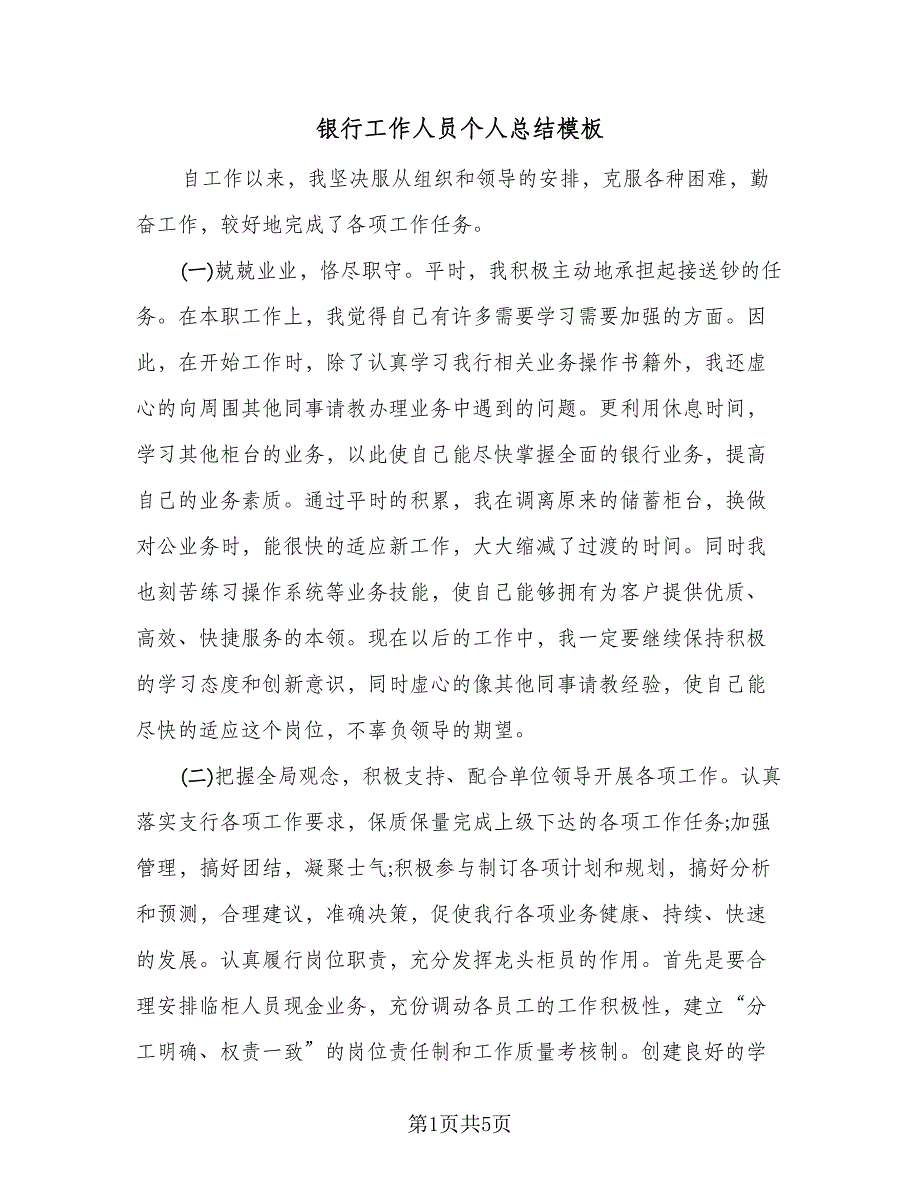 银行工作人员个人总结模板
自工作以来，我坚决服从组织和领导的安排，克服各种困难，勤
奋工作，较好地完成了各项工作任务。
(一)兢兢业业，恪尽职守。平时，我积极主动地承担起接送钞的任
务。在本职工作上，我觉得自己有许多需要学习需要加强的方面。因
此，在开始工作时，除了认真学习我行相关业务操作书籍外，我还虚
心的向周围其他同事请教办理业务中遇到的问题。更利用休息时间，
学习其他柜台的业务，以此使自己能尽快掌握全面的银行业务，提高
自己的业务素质。通过平时的积累，我在调离原来的储蓄柜台，换做
对公业务时，能很快的适应新工作，大大缩减了过渡的时间。同时我
也刻苦练习操作系统等业务技能，使自己能够拥有为客户提供优质、
高效、快捷服务的本领。现在以后的工作中，我一定要继续保持积极
的学习态度和创新意识，同时虚心的像其他同事请教经验，使自己能
尽快的适应这个岗位，不辜负领导的期望。
(二)把握全局观念，积极支持、配合单位领导开展各项工作。认真
落实支行各项工作要求，保质保量完成上级下达的各项工作任务;加强
管理，搞好团结，凝聚士气;积极参与制订各项计划和规划，搞好分析
和预测，合理建议，准确决策，促使我行各项业务健康、持续、快速
的发展。认真履行岗位职责，充分发挥龙头柜员的作用。首先是要合
理安排临柜人员现金业务，充份调动各员工的工作积极性，建立“分
工明确、权责一致”的岗位责任制和工作质量考核制。创建良好的学
第1页共5页